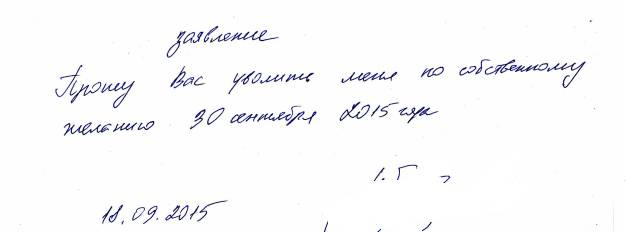 заявление
Прошу Вас уволить меня по собственному
желанию 30 сентября 2015 года
18.09.2015